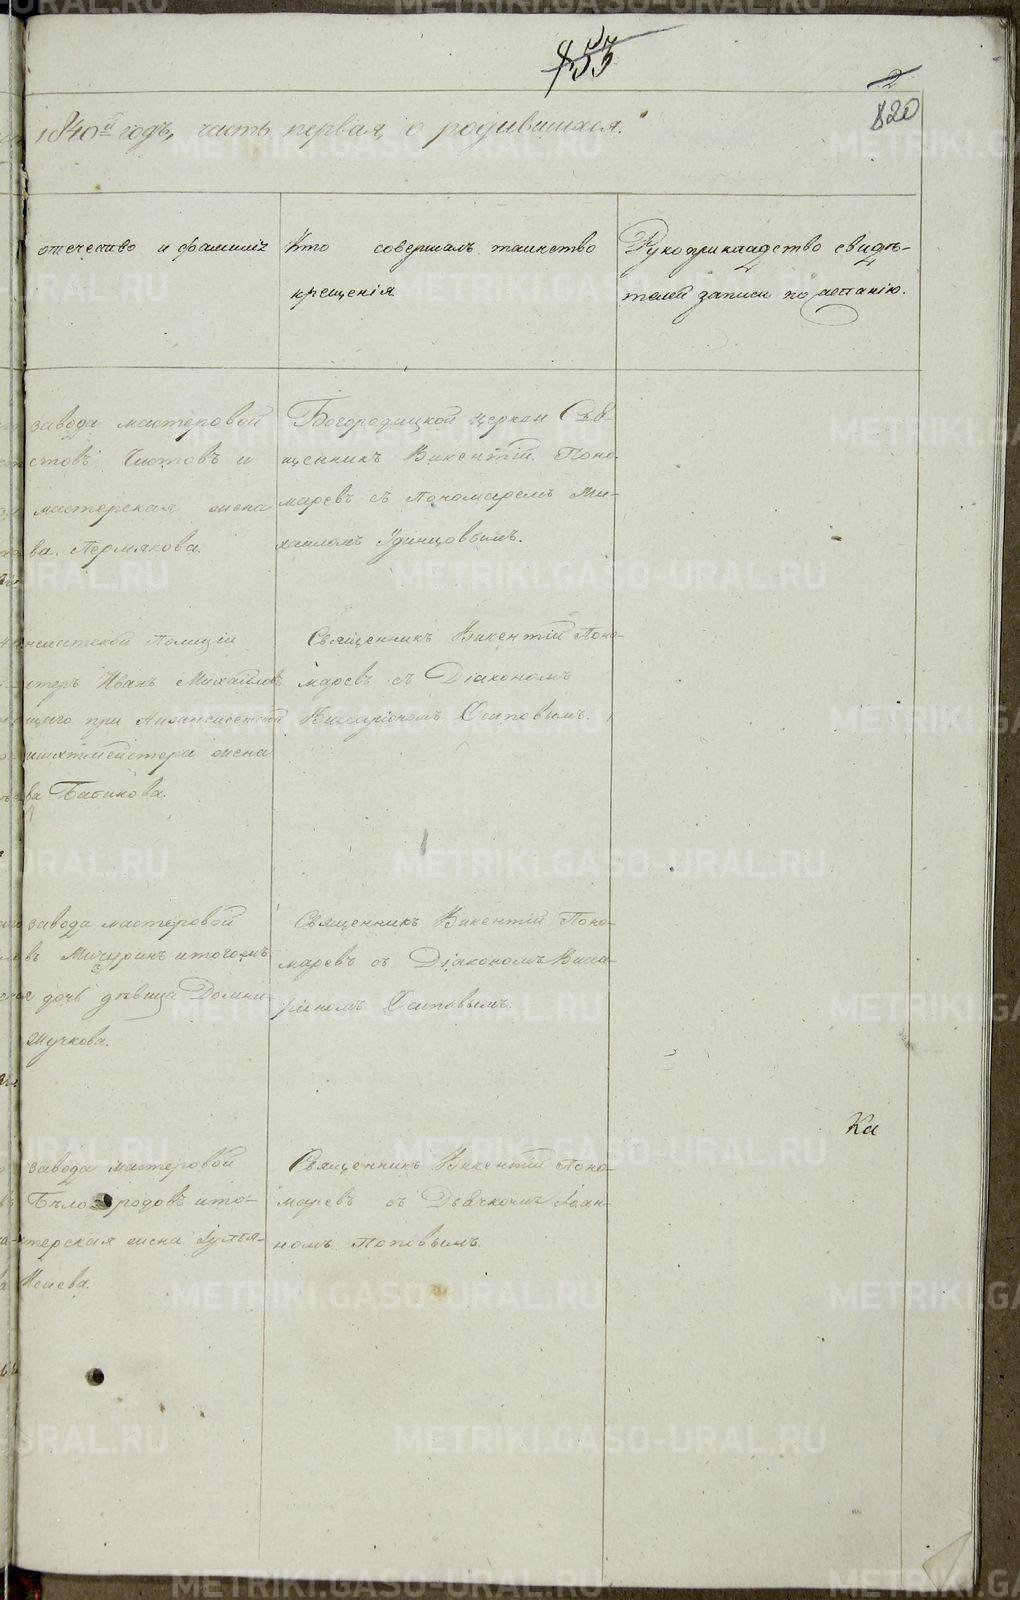 453
2
820
1840й годъ, часть первая, о родившихся.
отечество и фамилія
Кто совершалъ таинство
крещенія.
Рукоприкладство свидѣ-
телей записи по желанію.
завода мастеровой
стовъ Чистовъ и
мастерская жена
ва Пермякова.
Богородицкой церкви Свя-
щенникъ Викентій Поно-
маревъ съ Пономаремъ Ми-
хаиломъ Удинцовымъ.
Полиціи
Иванъ Михайловъ
при
жена
ва Бабикова.
Священникъ Викентій Поно-
маревъ съ Діакономъ
Виссаріономъ Осиповымъ.
завода мастеровой
въ Мичуринъ и тогожъ
дочь дѣвица Домни-
Жучкова.
Священникъ Викентій Поно-
маревъ съ Діакономъ Висса-
ріономъ Осиповымъ.
Ка
завода мастеровой
Бѣлобородовъ и то-
терская жена Гулья-
Исаева.
Священникъ Викентій Поно-
маревъ съ Дьячкомъ Іоан-
номъ Поповымъ.
METRIKI.GASO-URAL.RU